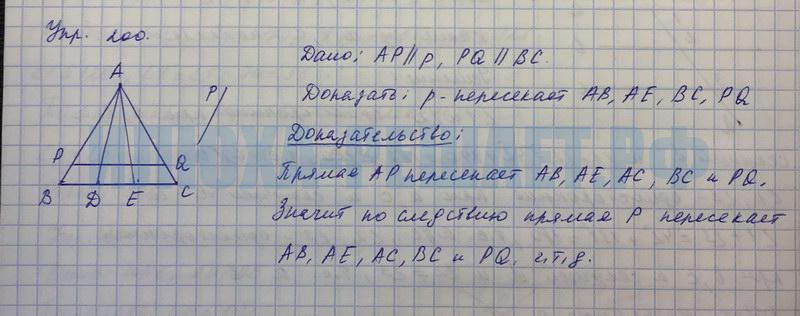 Упр. 200.
Дано: AP∥p, PQ∥BC.
Доказать: p-пересекает AB, AE, BC, PQ
Доказательство:
Прямая AP пересекает AB, AE, AC, BC и PQ.
Значит по следствию прямая P пересекает
AB, AE, AC, BC и PQ. ч.т.д.
A
P
P
Q
B
D
E
C